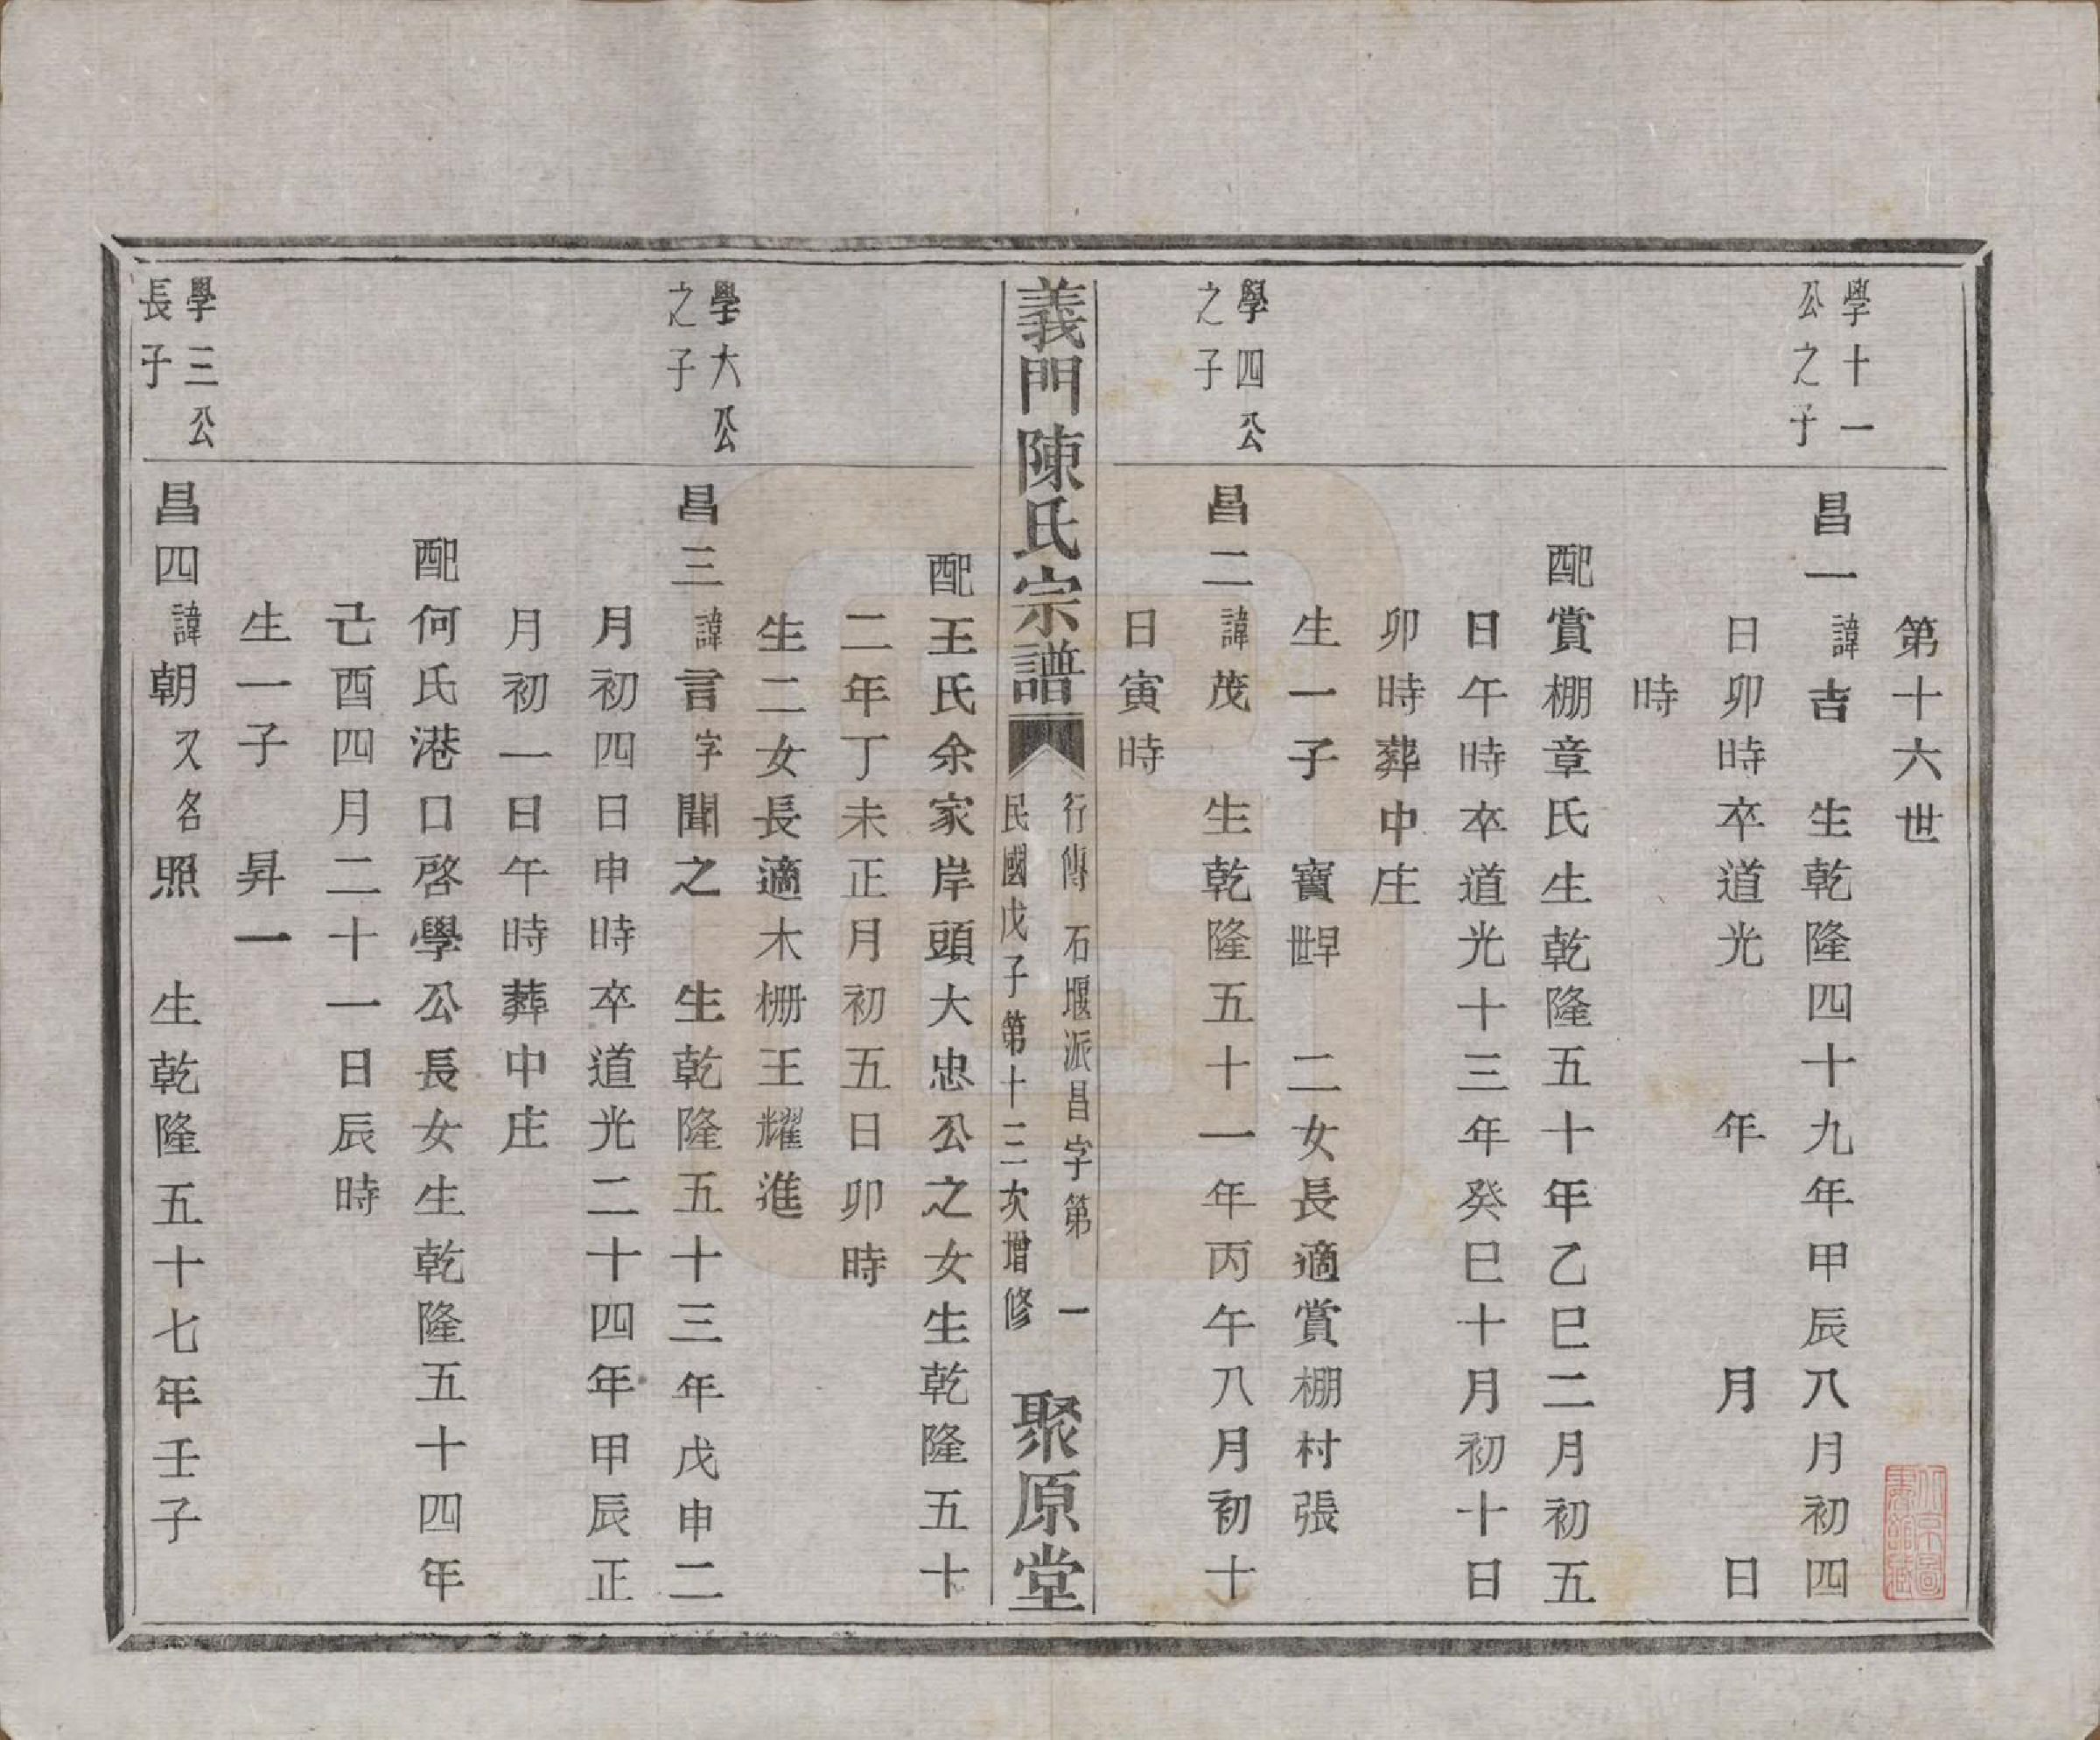 第十六世
學十一
公之子
昌一諱吉　生乾隆四十九年甲辰八月初四
日卯時卒道光　年　月　日
時
配賞棚章氏生乾隆五十年乙巳二月初五
日午時卒道光十三年癸巳十月初十日
卯時葬中庄
生一子　寶　二女長適賞棚村張
學四公
之子
昌二諱茂　生乾隆五十一年丙午八月初十
日寅時
義門陳氏宗譜
行傳　石堰派昌字第　一
民國戊子第十三次增修
聚原堂
配王氏余家岸頭大忠公之女生乾隆五十
二年丁未正月初五日卯時
生二女長適木柵王耀進
學大公
之子
昌三諱言字聞之　生乾隆五十三年戊申二
月初四日申時卒道光二十四年甲辰正
月初一日午時葬中庄
配何氏港口啓學公長女生乾隆五十四年
己酉四月二十一日辰時
生一子　昇一
學三公
長子
昌四諱朝又名照　生乾隆五十七年壬子